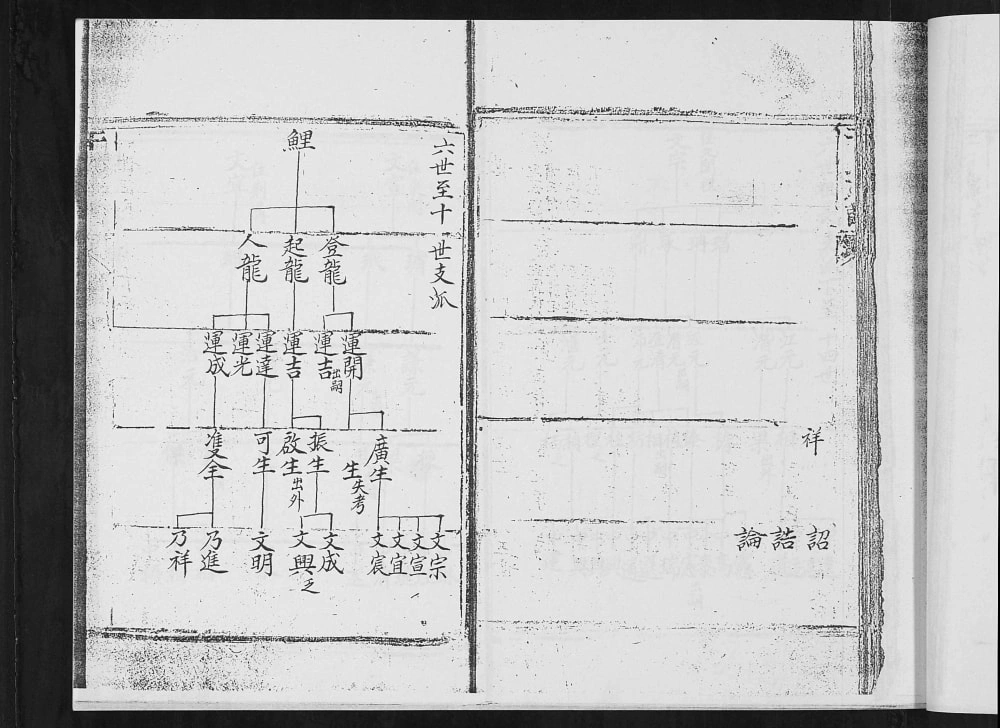 祥
詔
誥
論
六世至十一世支派
鯉
登龍
起龍
人龍
運開
運吉出嗣
運吉
運達
運光
運成
廣生
生失考
振生
啟生出外
可生
全
文宗
文宣
文宜
文宸
文成
文興乏
文明
乃進
乃祥